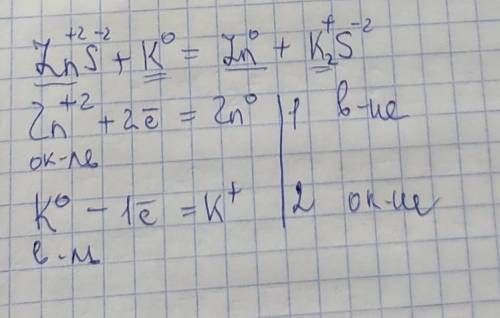 Zn⁺²S⁻² + K⁰ = Zn⁰ + K₂⁺S⁻²
Zn⁺² + 2ē = Zn⁰ | 1 в-ие
ок-ль
K⁰ - 1ē = K⁺ | 2 ок-ие
в-ль